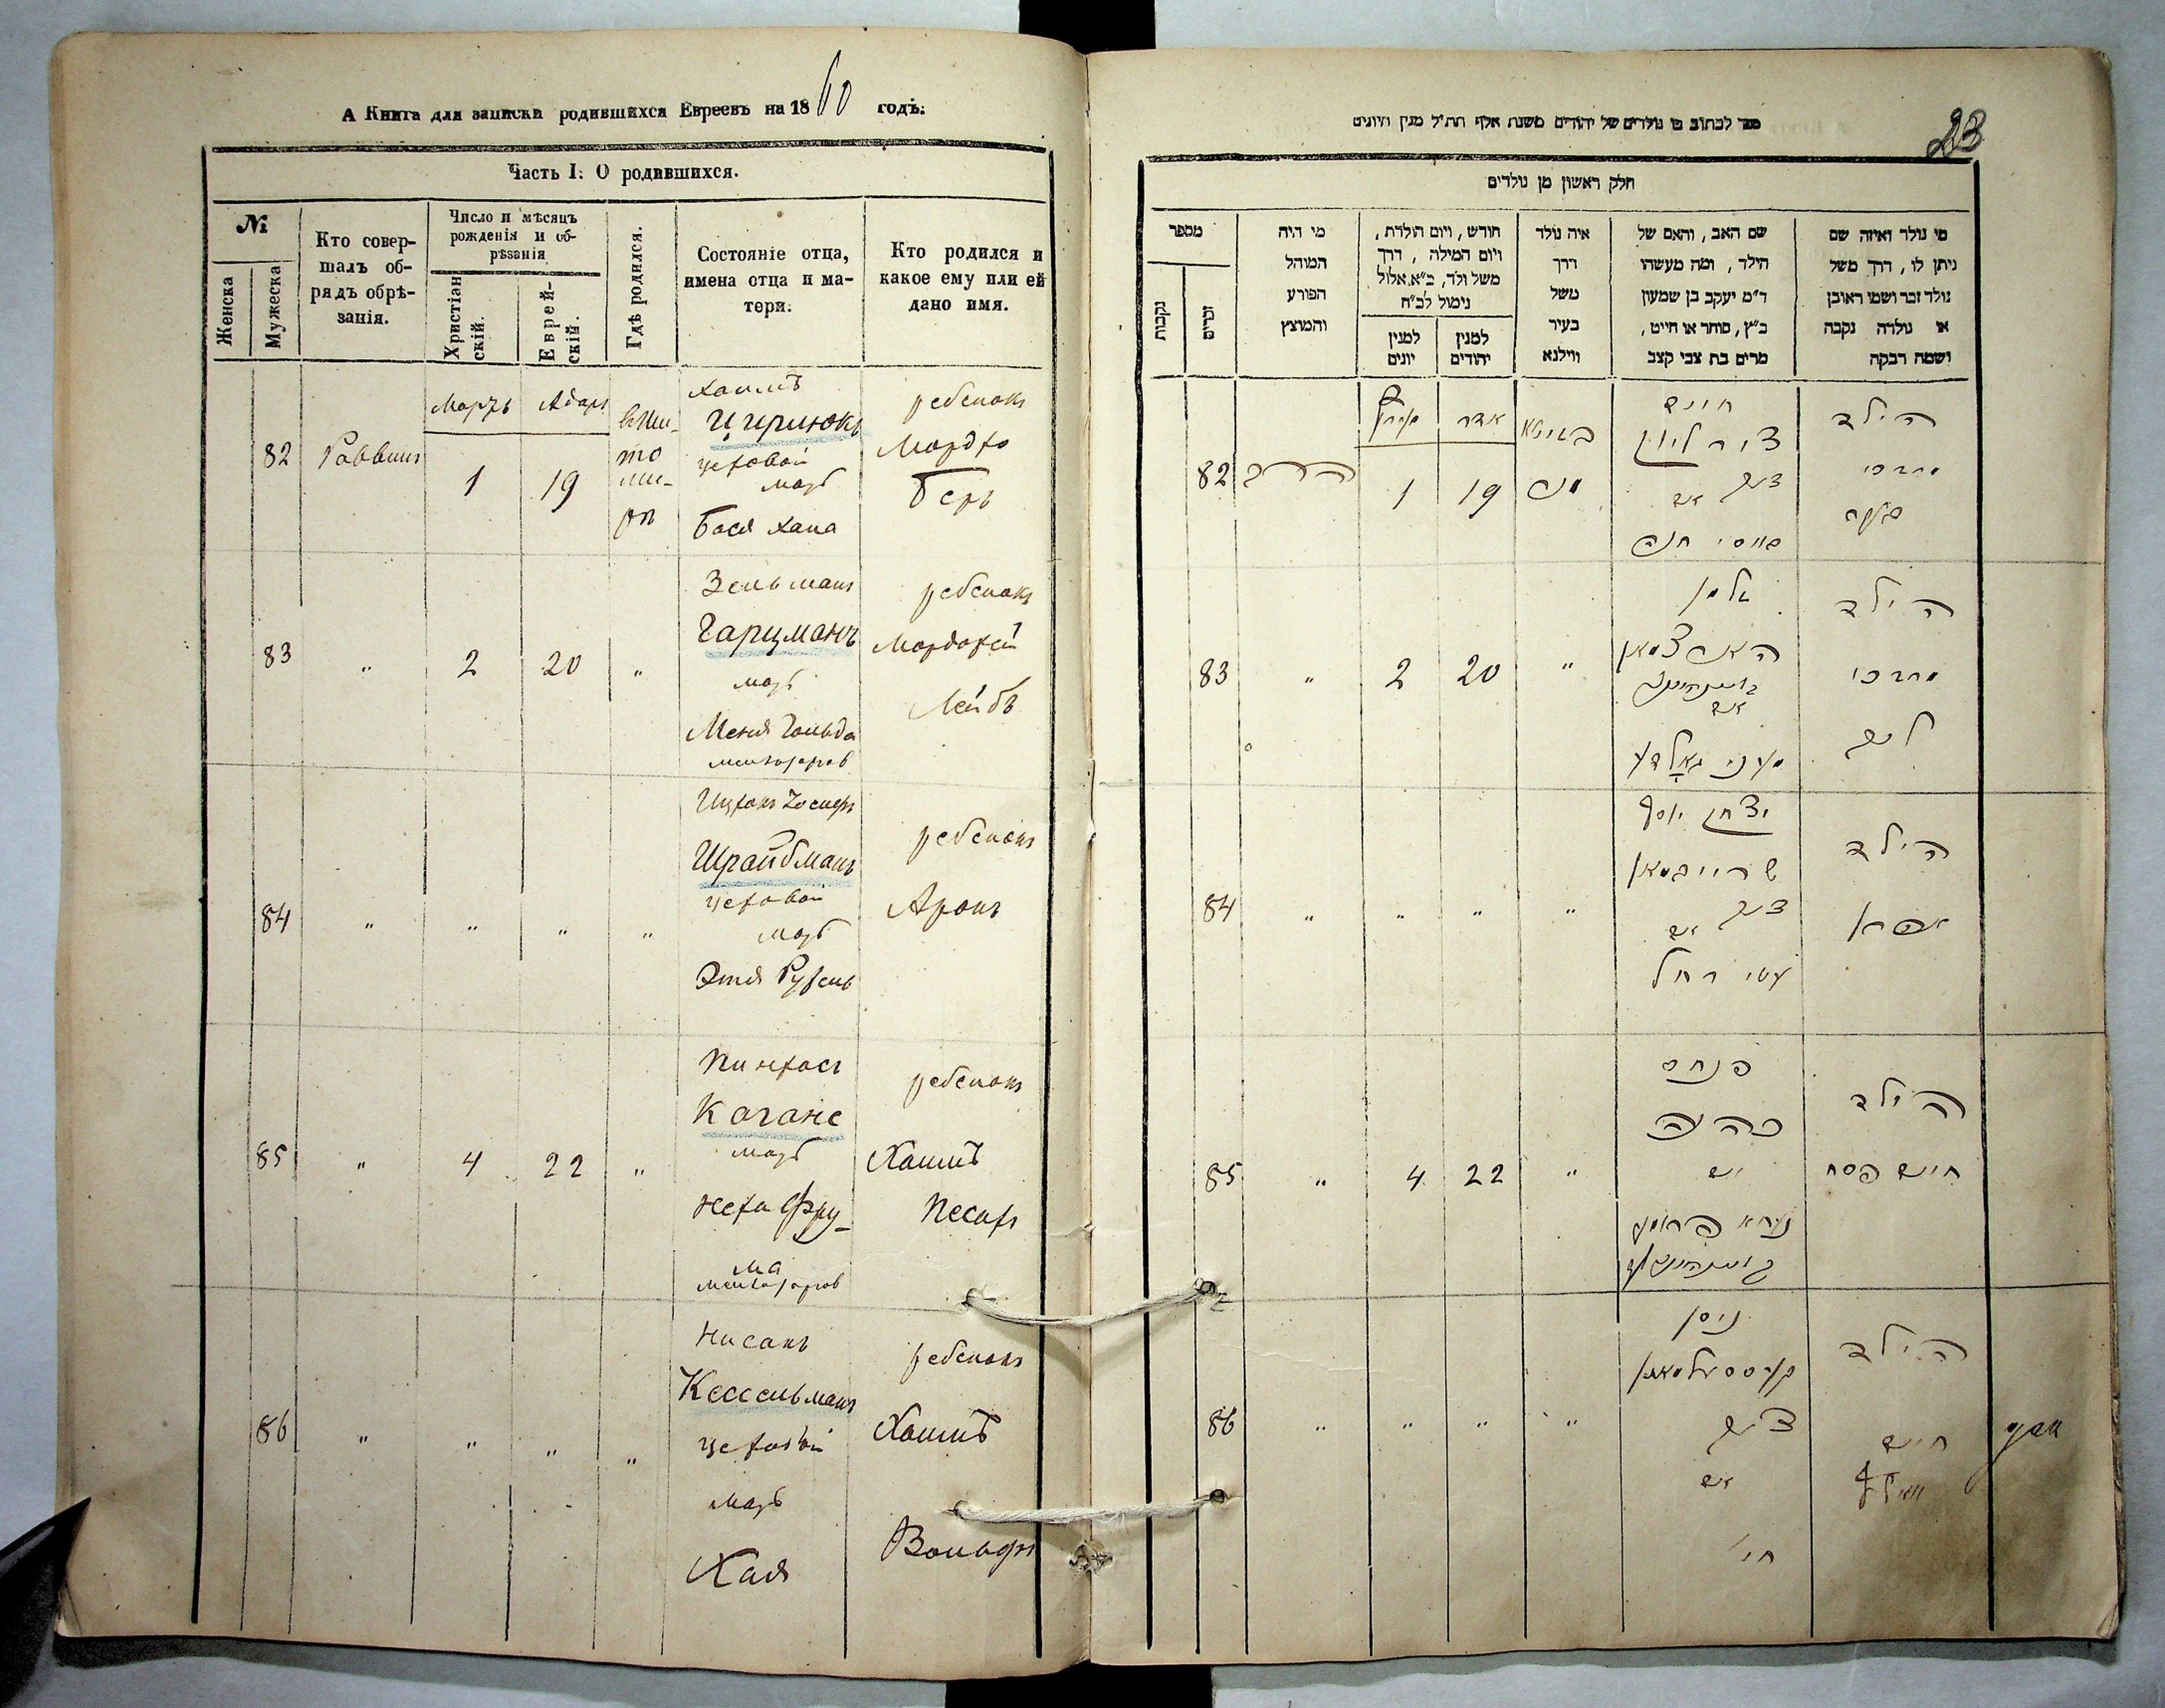 А Книга для записки родившихся Евреевъ на 1860 годъ.
Часть I. О родившихся.
№
Женска
Мужеска
Кто совер-
шалъ об-
рядъ обрѣ-
занія.
Число и мѣсяцъ
рожденія и об-
рѣзанія
Христіан
скій.
Еврей-
скій.
Гдѣ родился.
Состояніе отца,
имена отца и ма-
тери.
Кто родился и
какое ему или ей
дано имя.
82
Раввинъ
Мартъ
1
Адаръ
19
Хаимъ
Цирлюкъ
цеховой
мать
Бася Хана
ребенокъ
Мордхо
Беръ
83
"
2
20
"
Зельманъ
Гарцманъ
мать
Меня Гольда
ребенокъ
Мордохей
Лейбъ
84
"
"
"
"
Ицхокъ Іосифъ
Шрайбманъ
цеховой
мать
Этя Рухель
ребенокъ
Аронъ
85
"
4
22
"
Пинхасъ
Кагане
мать
Неха Фру-
ма
ребенокъ
Хаимъ
Песахъ
86
"
"
"
"
Нисанъ
Кессельманъ
цеховой
мать
Хая
ребенокъ
Хаимъ
Вольфъ
23
חלק ראשון מן נולדים
מספר
נקבות
זכרים
מי היה
המוהל
הפורע
והמוצץ
חודש, ויום הולדת,
ויום המילה, דרך
משל ולד, כ"א אלול
נימול לכ"ח
למנין
יונים
למנין
יהודים
איה נולד
דרך
משל
בעיר
ווילנא
שם האב, והאם של
הילד, ומה מעשהו
ר"מ יעקב בן שמעון
כ"ץ, סוחר או חייט,
מרים בת צבי קצב
מי נולד ואיזה שם
ניתן לו, דרך משל
נולד זכר ושמו ראובן
או נולדה נקבה
ושמה רבקה
82
הרב
1
אדר
19
חיים
צירליוק
אם
באסי חנה
הילד
מרדכי
83
"
2
20
"
זלמן
הארצמאן
אם
מעני גאלדע
הילד
מרדכי
ליב
84
"
"
"
"
יצחק יוסף
שרייבמאן
אם
עטי רחל
הילד
אהרן
85
"
4
22
"
פנחס
כהנא
אם
נעכא פרומע
הילד
חיים פסח
86
"
"
"
"
ניסן
קעססעלמאן
אם
חי'
הילד
חיים
וואלף